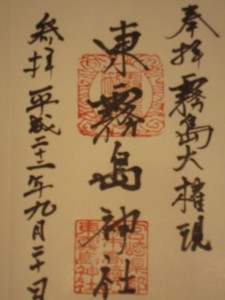 奉拝 霧島大権現
東霧島神社
参拝 平成二十二年九月二十日